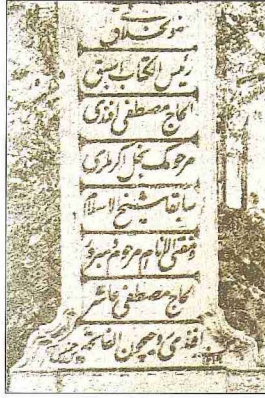 هو الخلاق
رئيس الكتاب اسبق
الحاج مصطفى افندى
مرحومك نجل كرملرى
سابقا شيخ الاسلام
ومفتى الانام مرحوم ومبرور
الحاج مصطفى عاشر
افندى روحيچون الفاتحة